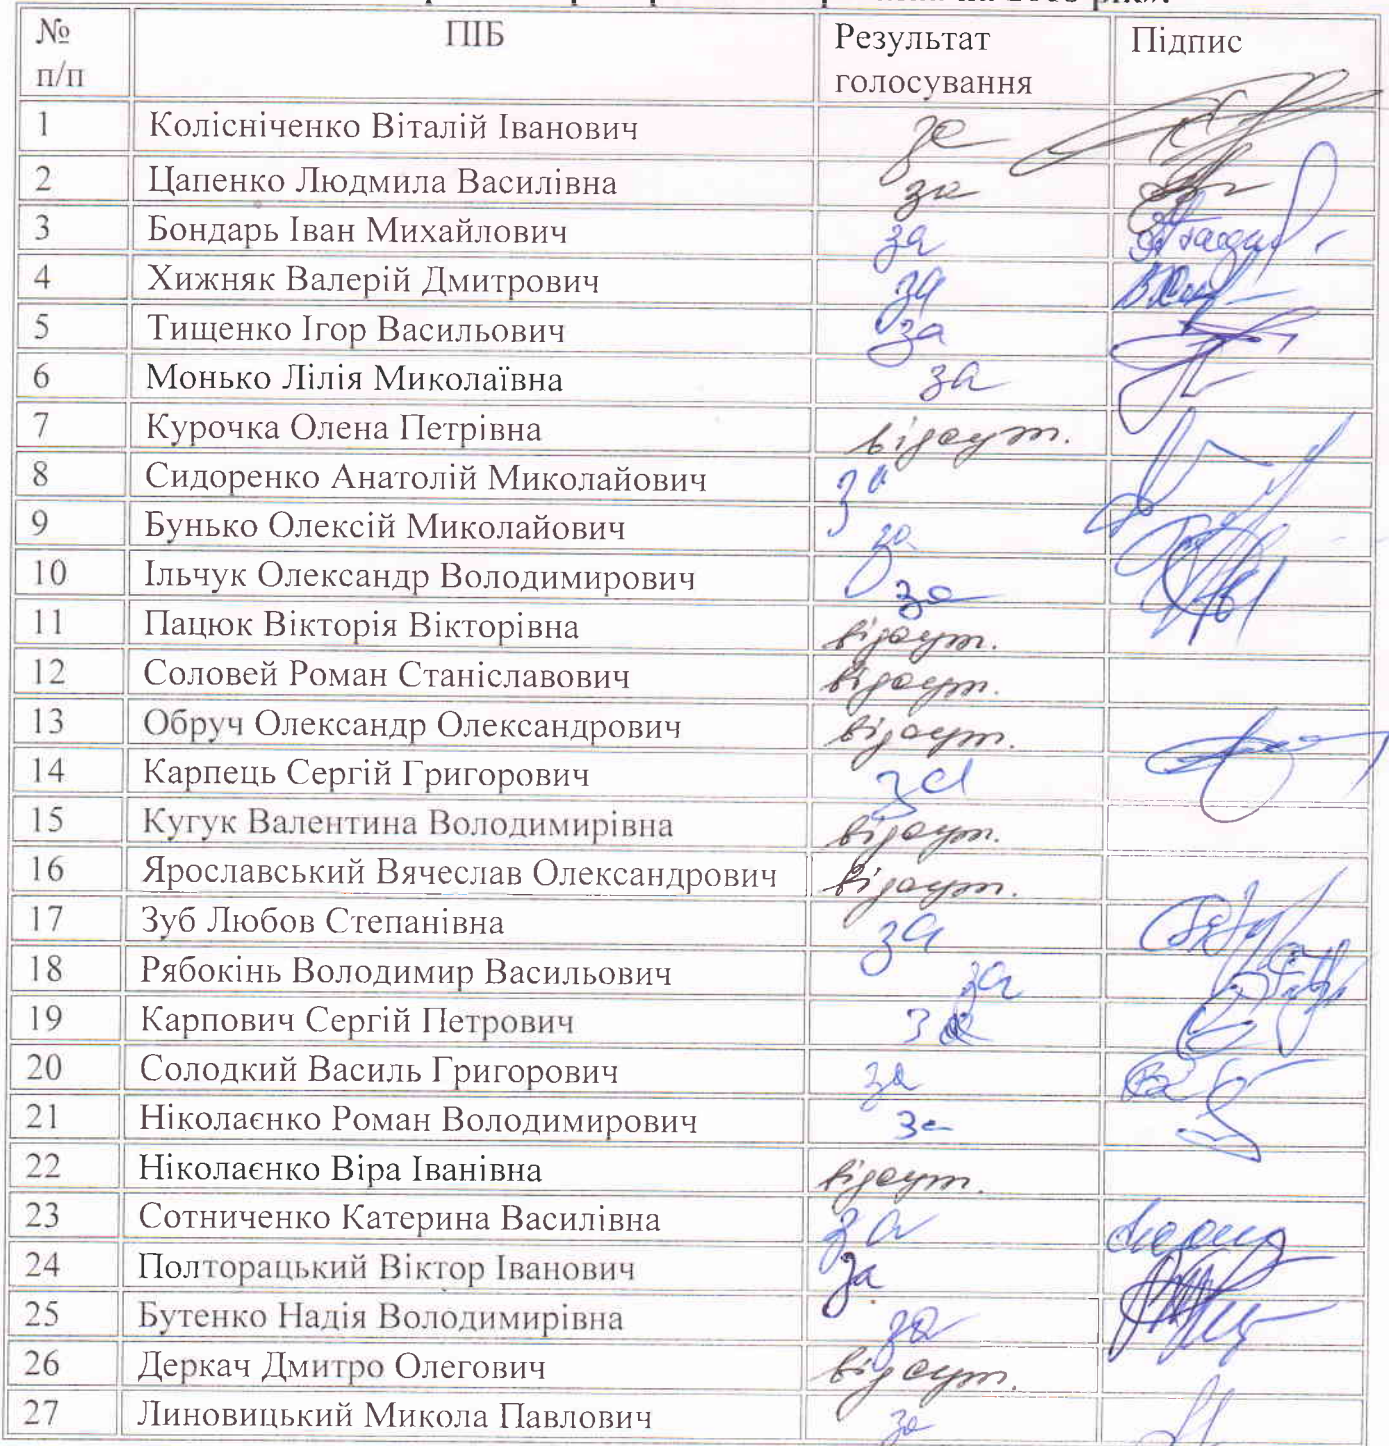 на 2008 рік».
№ п/п ПІБ Результат голосування Підпис
1 Колісніченко Віталій Іванович за
2 Цапенко Людмила Василівна за
3 Бондарь Іван Михайлович за
4 Хижняк Валерій Дмитрович за
5 Тищенко Ігор Васильович за
6 Монько Лілія Миколаївна за
7 Курочка Олена Петрівна відсут.
8 Сидоренко Анатолій Миколайович за
9 Бунько Олексій Миколайович за
10 Ільчук Олександр Володимирович за
11 Пацюк Вікторія Вікторівна відсут.
12 Соловей Роман Станіславович відсут.
13 Обруч Олександр Олександрович відсут.
14 Карпець Сергій Григорович за
15 Кугук Валентина Володимирівна відсут.
16 Ярославський Вячеслав Олександрович відсут.
17 Зуб Любов Степанівна за
18 Рябокінь Володимир Васильович за
19 Карпович Сергій Петрович за
20 Солодкий Василь Григорович за
21 Ніколаєнко Роман Володимирович за
22 Ніколаєнко Віра Іванівна відсут.
23 Сотниченко Катерина Василівна за
24 Полторацький Віктор Іванович за
25 Бутенко Надія Володимирівна за
26 Деркач Дмитро Олегович відсут.
27 Линовицький Микола Павлович за